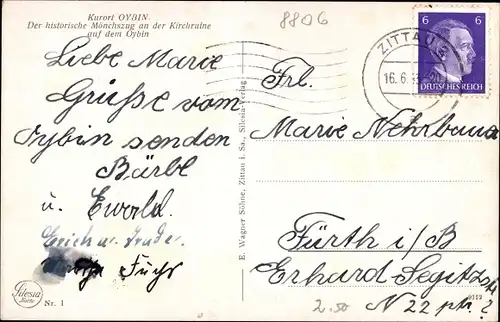 Kurort OYBIN.
Der historische Mönchszug an der Kirchruine
auf dem Oybin
8806
ZITTAU
16. 6.
6 6
DEUTSCHES REICH
Liebe Marie
Grüße vom
Oybin senden
Bärbl
u. Ewald.
Erich u. Trude.
Fuchs
Silesia
Karte
Nr. 1
E. Wagner Söhne, Zittau i. Sa., Silesia-Verlag
Frl.
Marie Nehrbaua
Fürth i/B
Erhard Segitzstr
N 22 ptr. ?
2.50